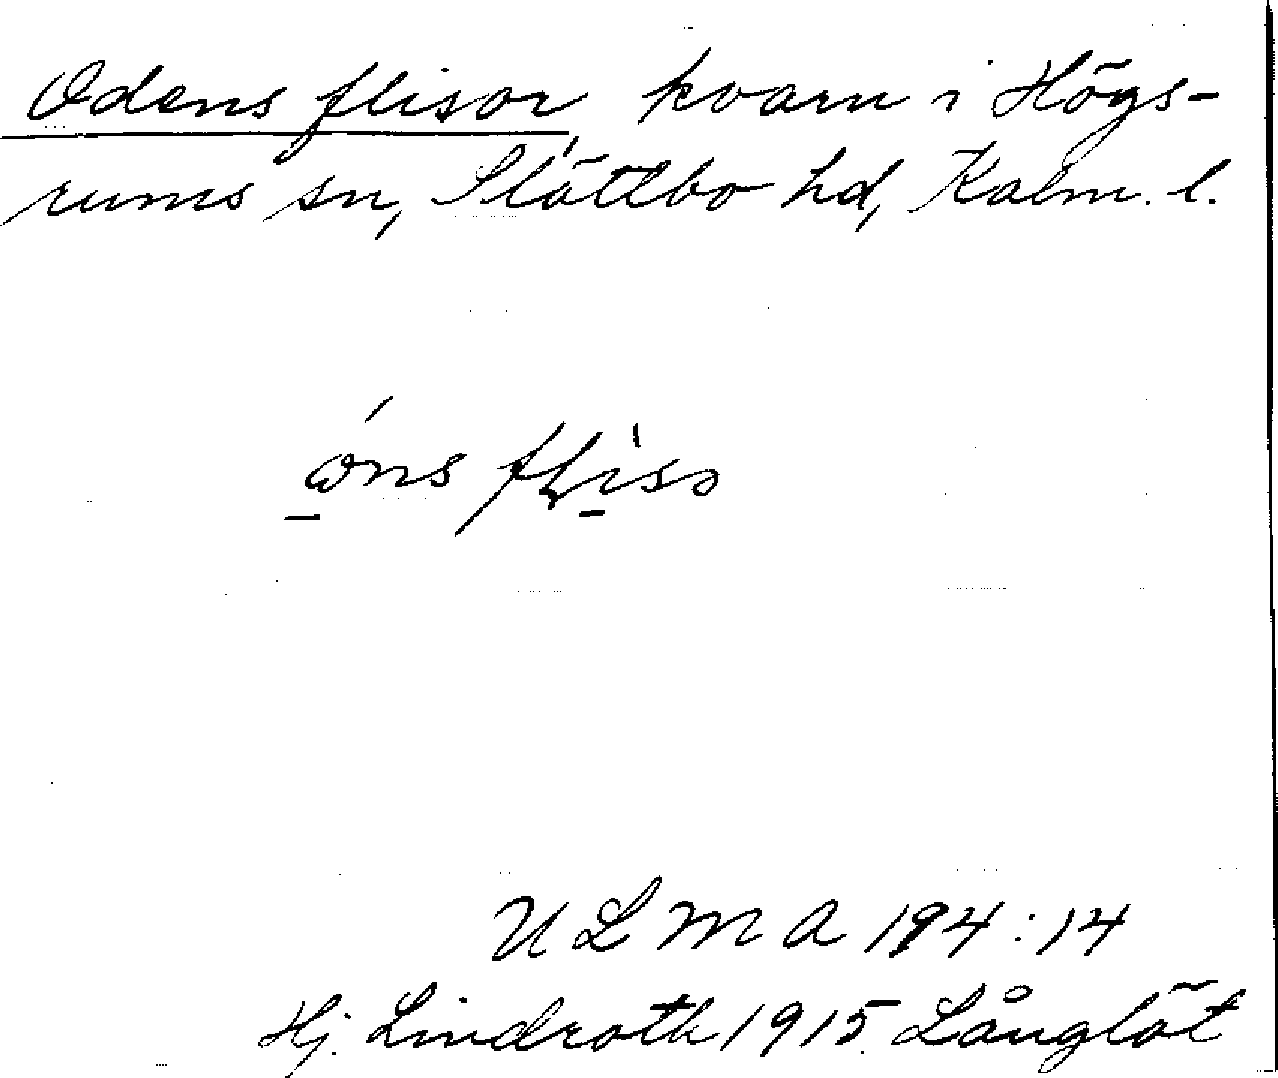 Odens flisor, kvarn i Högs-
rums sn, Slättbo hd, Kalm. l.
óns fliso
U L M A 194:14
Hj. Lindroth 1915. Långlöt